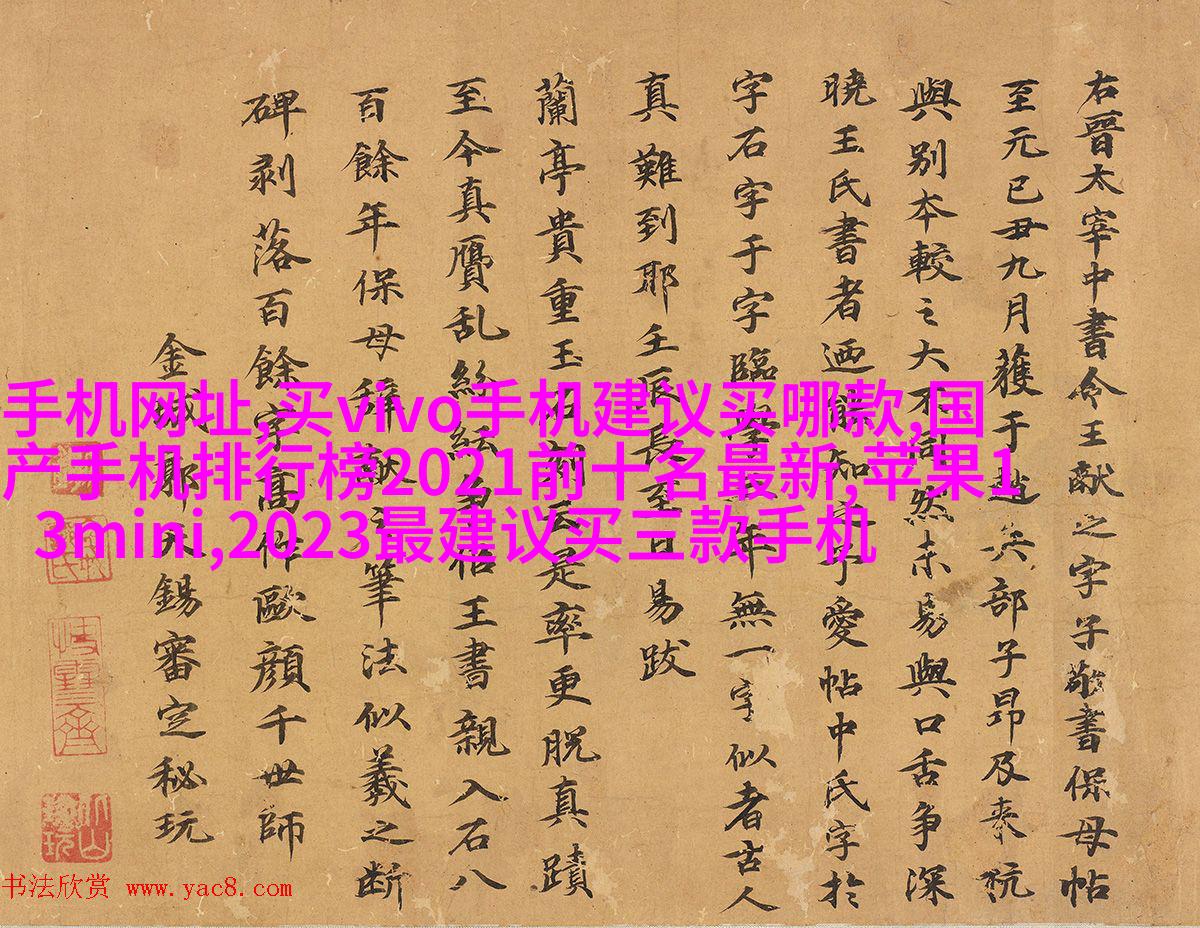 右晉太宰中書令王獻之字子敬書保母帖
至元己丑九月獲于越兵部子昂及來杭
與別本較之大不同然未易與口舌争深
曉王氏書者迺能知此予愛帖中氏字於
字石字于字臨學
年無一字似者古人
真難到耶壬辰長至日易跋
蘭亭貴重玉石刻云是率更脱真蹟
至今真贋乱紛紜
王書親入石八
百餘年保母辭
筆法似羲之断
碑剥落百餘字高伴歐顔千世師
金城郭天錫審定秘玩
手机网址,买vivo手机建议买哪款,国
产手机排行榜2021前十名最新,苹果1
3mini,2023最建议买三款手机
书法欣赏 www.yac8.com